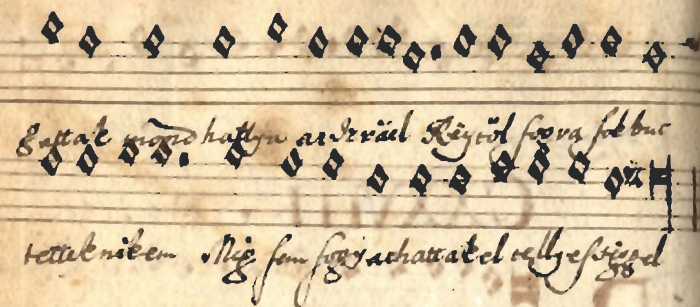 gattak mondhattya az Izräel Rigtöl fogva sok but
tettek nikem Mig sem fogyathattak el tellyessiggel